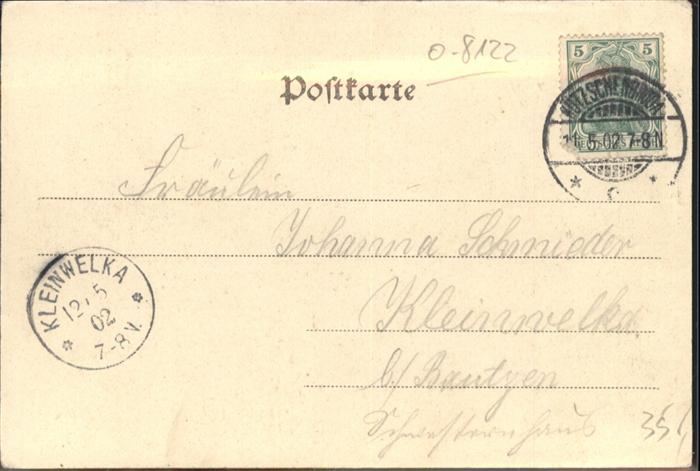 0-8122
5 5
Postkarte
11.5.02.7-8N
Fräulein
Johanna Schnieder
Kleinwelka
KLEINWELKA
12.5
02
7-8V.
b/ Bautzen
Schwesternhaus